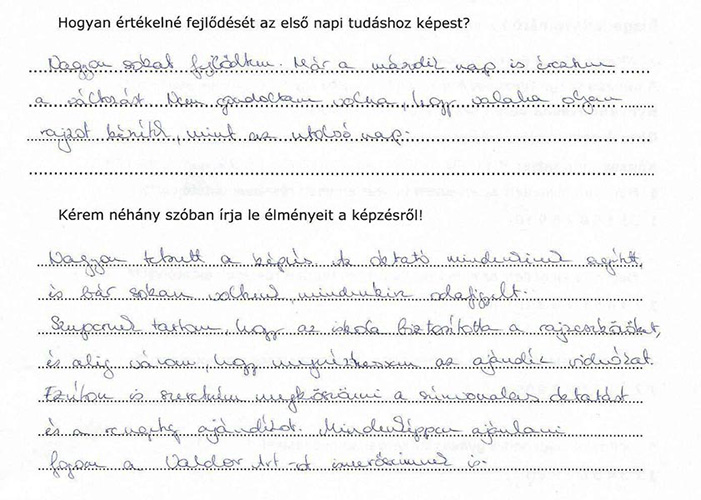 Hogyan értékelné fejlődését az első napi tudáshoz képest?
Nagyon sokat fejlődtem. Már a második nap is éreztem
a változást. Nem gondoltam volna, hogy valaha olyan
rajzot készítek, mint az utolsó nap.
Kérem néhány szóban írja le élményeit a képzésről!
Nagyon tetszett a képzés. Az oktató mindenkinek segített,
és bár sokan voltunk, mindenkire odafigyelt.
Szupernek tartom, hogy az iskola biztosította a rajzeszközöket,
és alig várom, hogy megnézhessem az ajándék videókat.
Ezúton is szeretném megköszönni a színvonalas oktatást
és a rengeteg ajándékot. Mindenképpen ajánlani
fogom a Valdor Art-ot ismerőseimnek is.